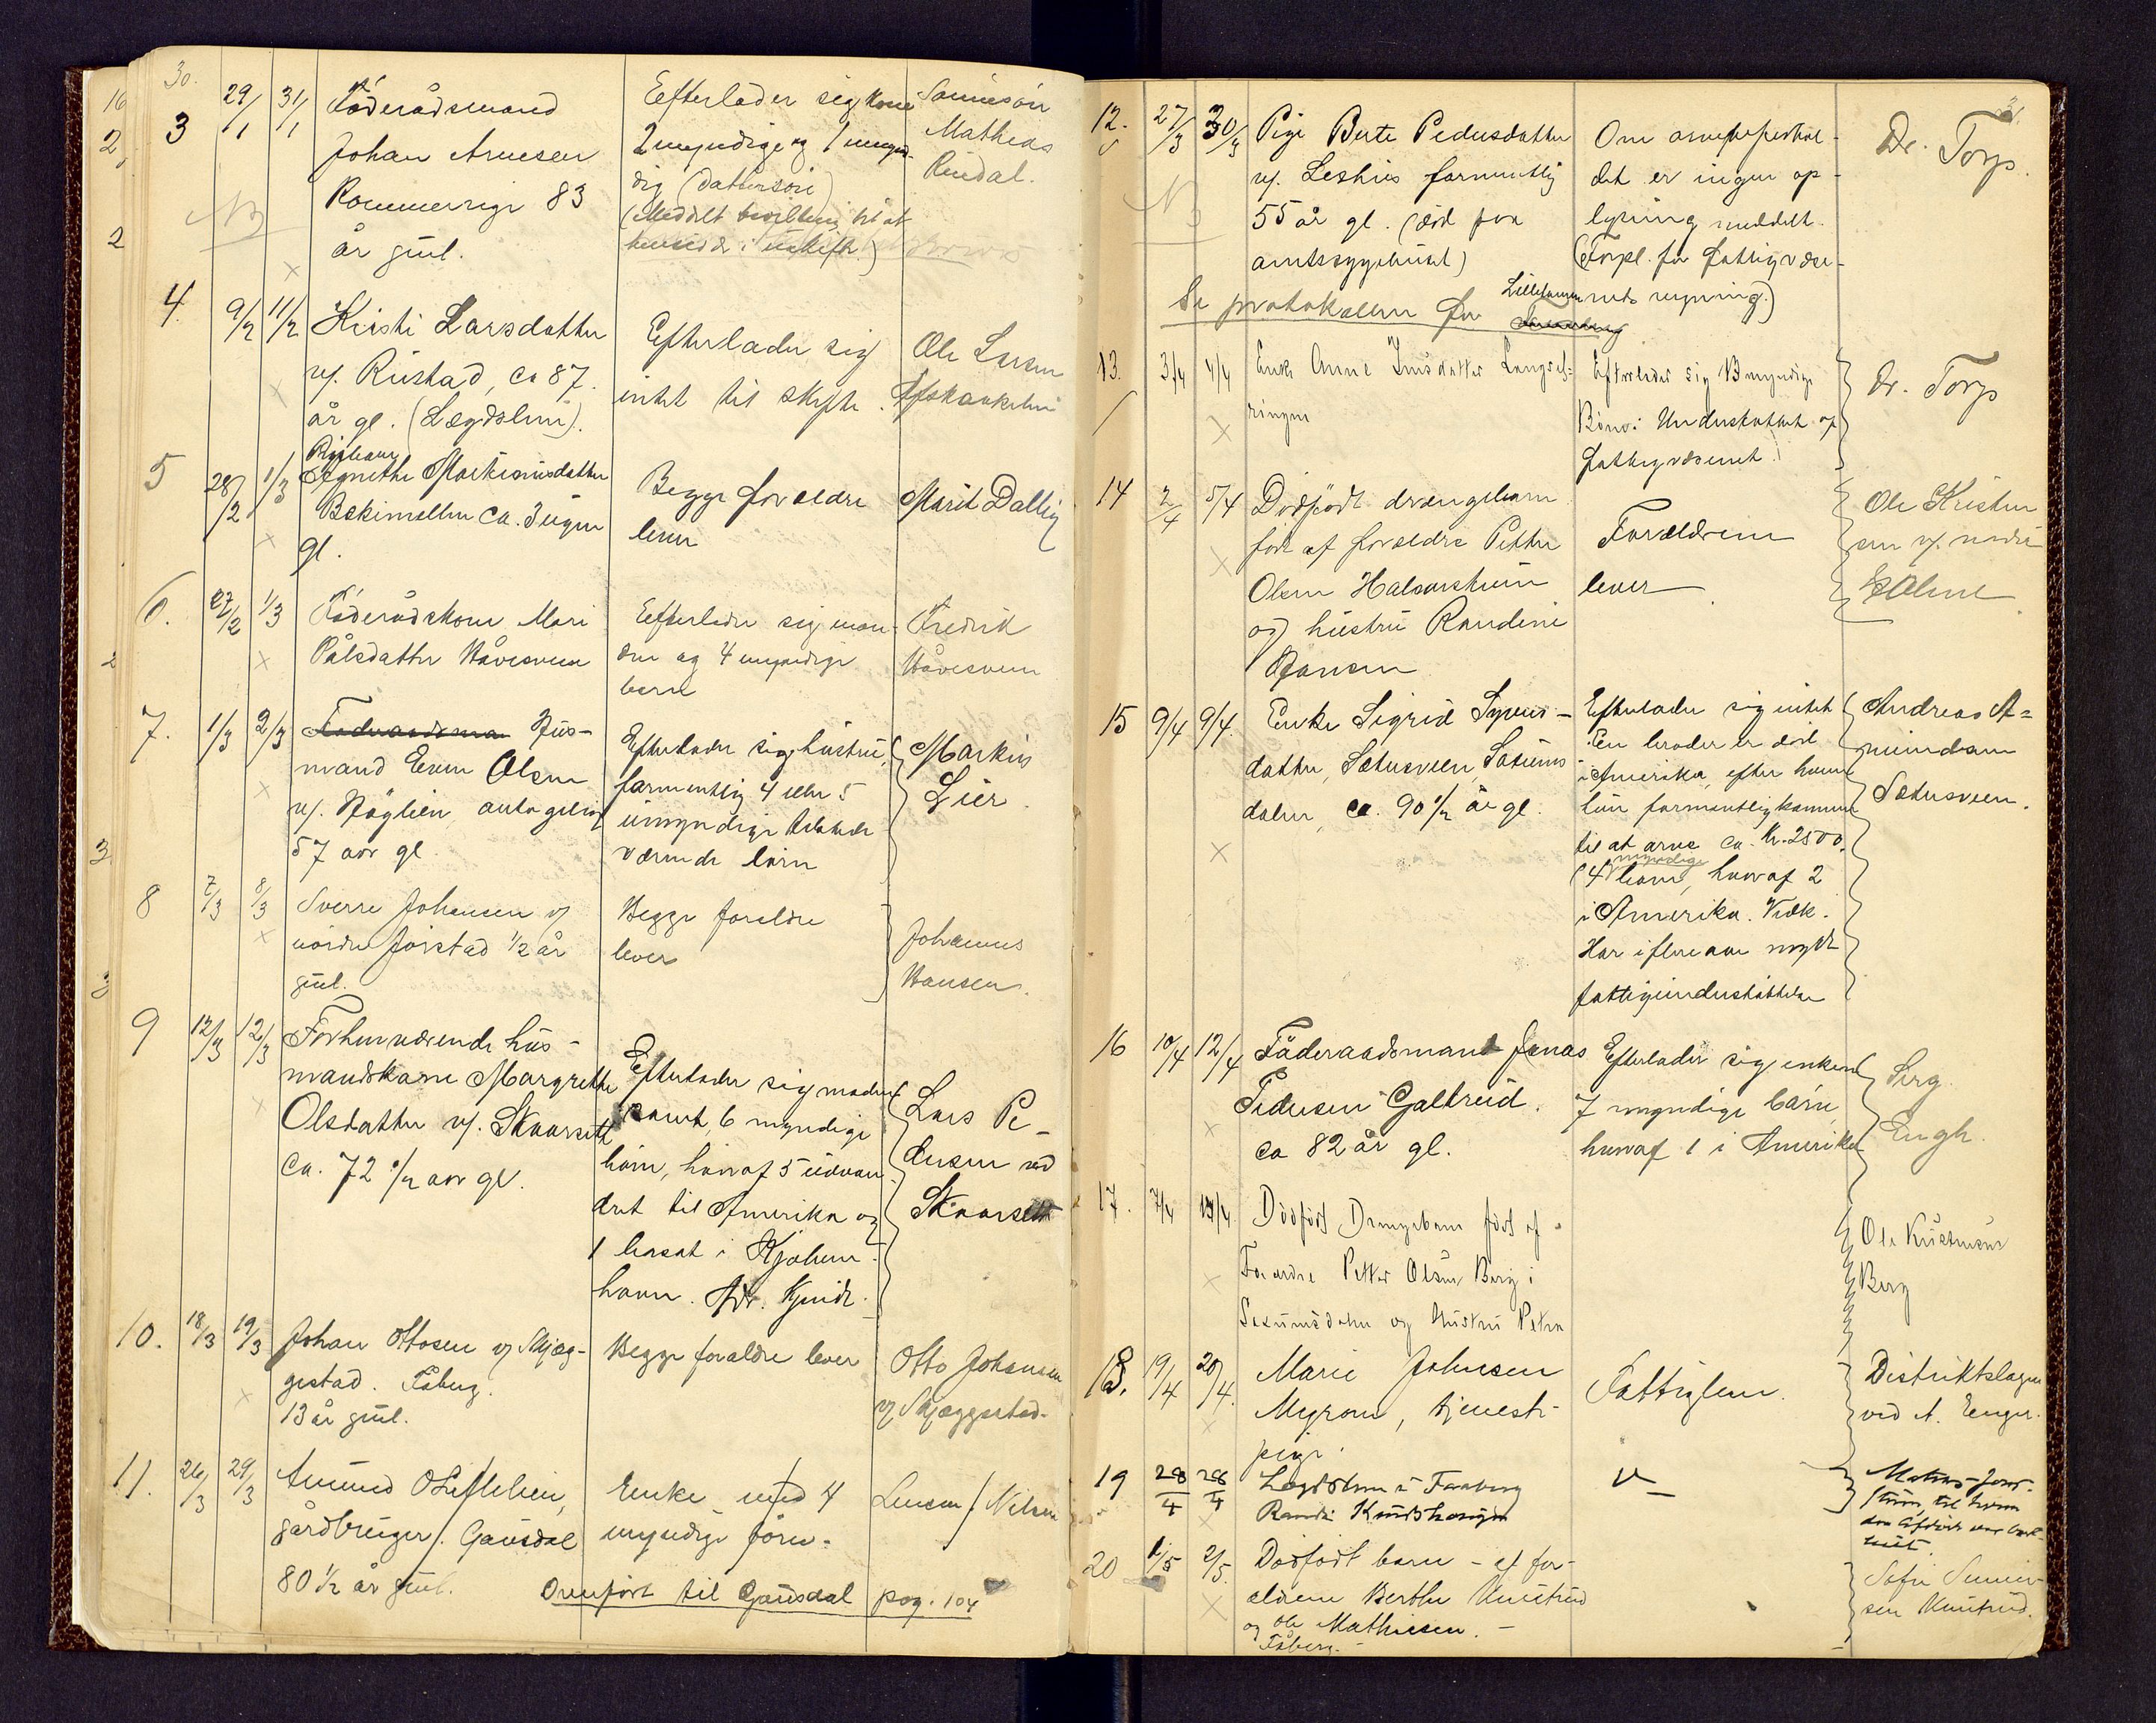 30.
3 29/1 31/1 Föderådsmand
Johan Arnesen
Rommerrige 83
år gül.
Eefterlader sig kone
2 myndige og 1 umyn-
dig (dattersøn)
(Meddelt bevilling til at
hensidde i uskifte)
Mathias
Rindal.
NB
4. 9/2 11/2 Kristi Larsdatter
v/. Rüstad, ca 87.
år gl. (Lægdslem).
Efterlader sig
intet til skifte.
Ole Larsen
5 28/2 1/3 Pigebarn
Agnethe Martinusdatter
Bækimellem ca. 3 ugen
gl.
Begge forældre
lever
Marit Dalbig
6. 27/2 1/3 Föderådskone Mari
Pålsdatter Håvesveen
Eefterlader sig man-
den og 4 myndige
børn
Fredrik
Håvesveen
7. 1/3 2/3 Föderaadsman Hüs-
mand Even Olsen
v/. Høglien, antagelig
57 aar gl
Efterlader sig hüstrü,
formentlig 4 eller 5
ümyndige tilstede
værende børn
Markus
Lier
8 7/3 8/3 Sverre Johansen v/
nordre Jørstad 1/2 år
gül.
Begge forældre
lever
Johannes
Hansen.
9 12/3 12/3 Forhenværende hüs-
mandskone Margrethe
Olsdatter v/. Skaarsett
ca. 72 1/2 aar gl.
Efterlader sig manden
samt 6 myndige
børn, hvoraf 5 üdvan-
dret til Amerika og
1 bosat i Kjøben-
havn. Adr. Kjendt.
Lars Pe-
dersen ved
Skaarsett
10. 18/3 19/3 Johan Ottosen v/ Skjæg-
gestad. Fåberg.
13 år gül.
Begge forældre lever
Otto Johansen
v/ Skjæggestad.
11. 26/3 29/3 Amund O.
gårdbrüger/. Gaüsdal
80 1/2 år gül.
Enke med 4
myndige børn.
Lensm/ Nilsen
Overført til Gaüsdal pag. 104
31.
12. 27/3 30/3 Pige Berte Pedersdatter
v/. Leshüs formentlig
55 år gl. (død paa
amtssygehüset)
Om arveforhol-
det er ingen op-
lysning meddelt.
(Forpl. for fattigvæse-
nets regning.)
Dr. Torp.
NB
Se protokollen for Lillehammer
13. 3/4 4/4 Enke Anne Jensdatter
Efterlader sig 3 myndige
Børn: Understøttet af
fattigvæsenet.
Dr. Torp
14 2/4 5/4 Dødfødt drengebarn
født af forældre Petter
Olsen Halvorsheim
og hüstrü Randine
Hansen
Forældrene
lever
Ole Kristen
sen v/. nordre
Holme
15 9/4 9/4. Enke Sigrid Syvers-
datter, Sætersveen, Saxüms
dalen, ca. 90 1/2 år gl.
Efterlader sig intet
. En broder er død
i Amerika, efter ham
hün formentlig kommer
til at arve ca. Kr. 2500.
(4 myndige børn, hvoraf 2
i Amerika.
Har i flere aar nydt
fattigünderstøttelse
Andreas A=
mündsen
Sætersveen.
16 10/4 12/4 Föderaadsmand Jonas
Pedersen Galterud.
ca 82 år gl.
Efterlader sig enken
7 myndige børn,
hvoraf 1 i Amerika
Serg.
Engh.
17. 7/4 13/4. Dødfødt Drengebarn født af
Forældre Petter Olsen Berg i
Saxumsdalen og Hüstrü Petra
Ole Kristensen
Berg
18. 19/4 20/4. Marie Johnsen
Myrom, tjeneste-
pige.
Fattiglem.
Distriktslægen
ved A. Enger.
19 28/4 28/4 Lægdslem i Faaberg
Randi Knüdshaügen
Mathias
til hvem
den afdøde var bort-
sat
20 1/5 2/5. Dødfødt barn - af for-
ældrene Berthe Knütrüd
og Ole Mathiesen. -
Fåberg. -
Sofie Simen-
sen Knütrüd.